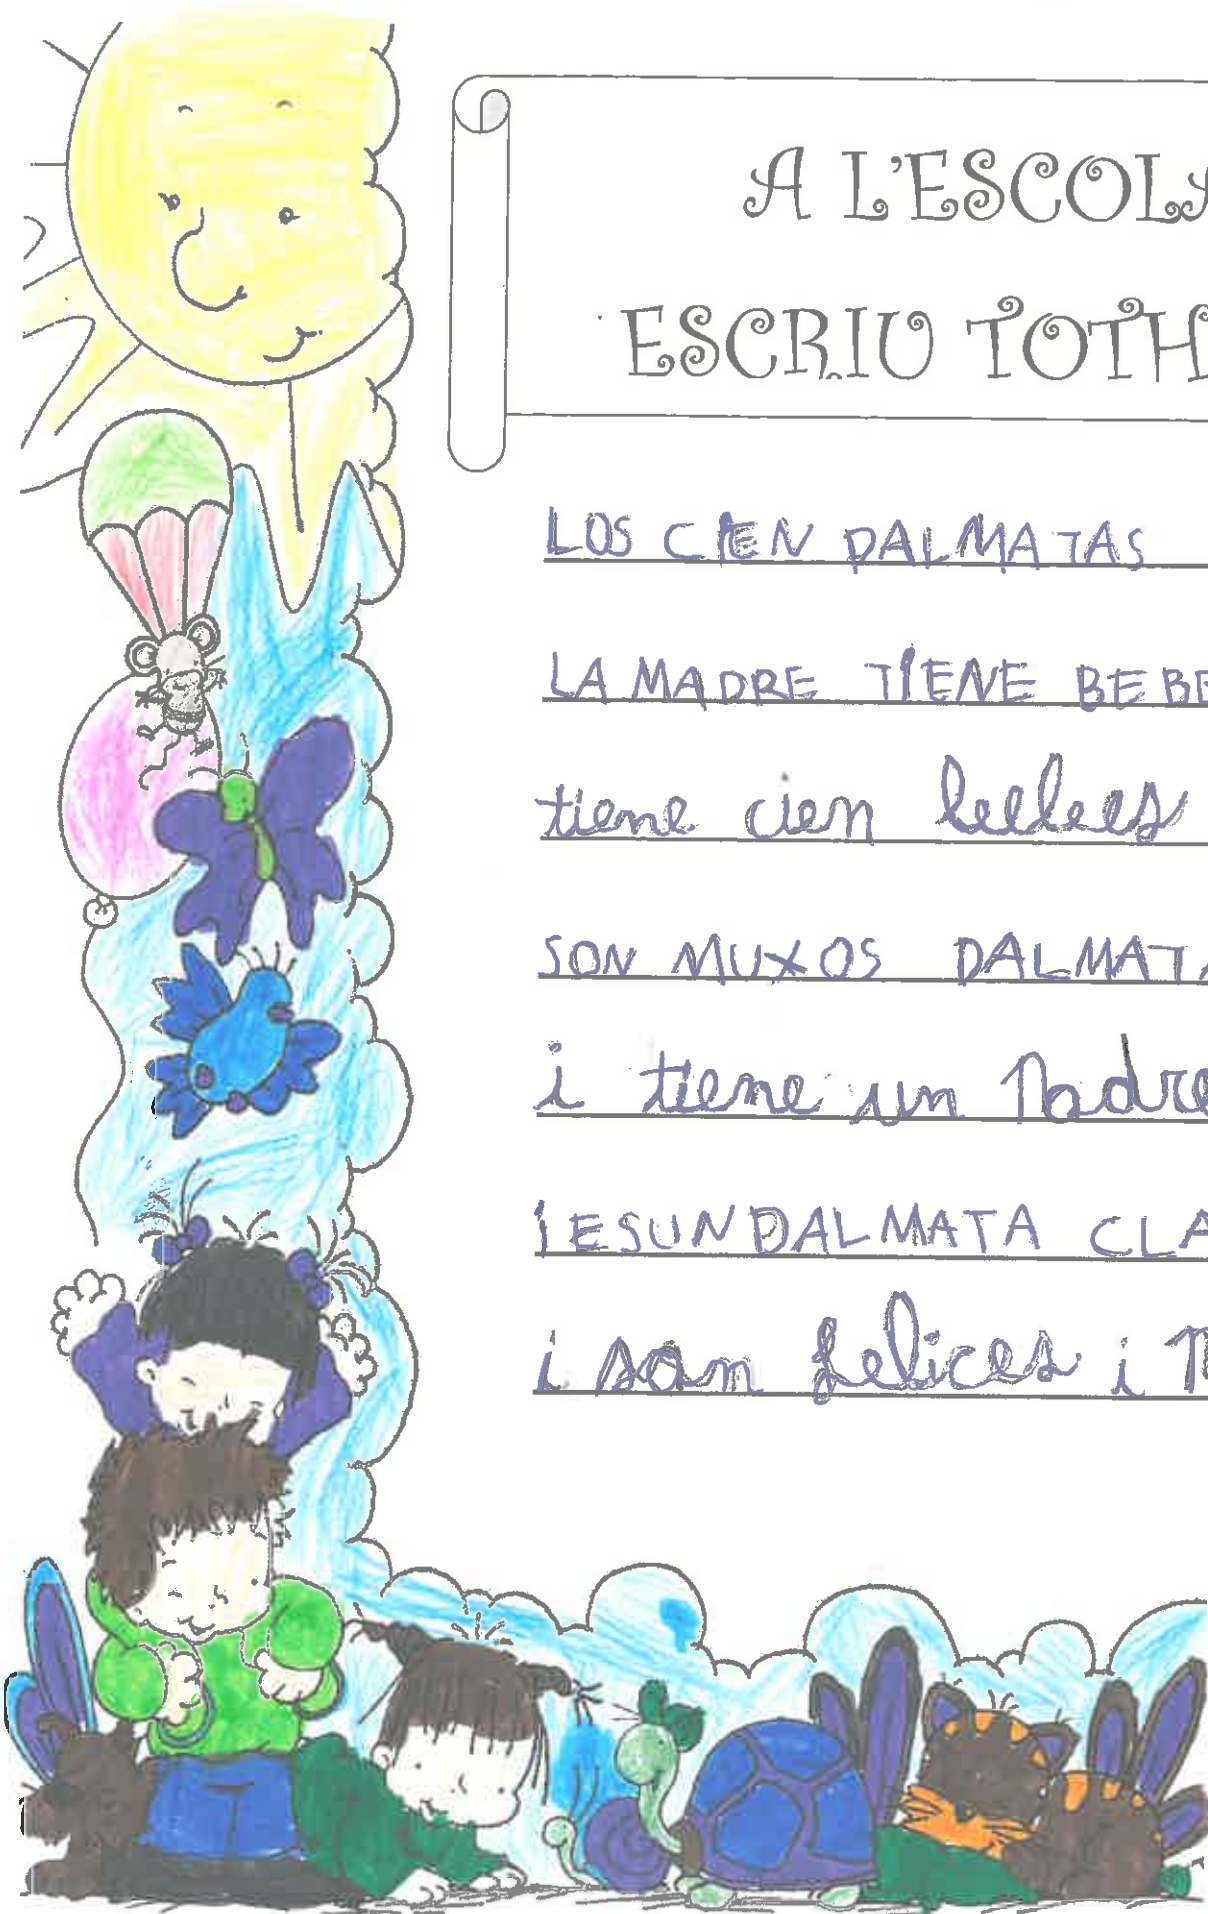 A L'ESCOLA
ESCRIU TOTH
LOS CIEN DALMATAS
LA MADRE TIENE BEBE
tiene cien bebees
SON MUXOS DALMATA
i tiene un Padre
i ES UN DALMATA CLA
i son felices i